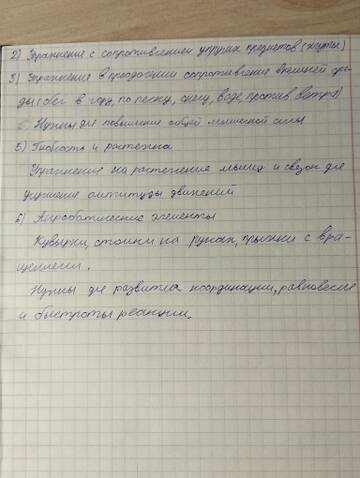 2) Упражнения с сопротивлением упругих предметов (жгуты)
3) Упражнения в преодолении сопротивления внешней сре-
ды (бег в гору, по песку, снегу, воде, против ветра)
Нужны для повышения общей мышечной силы
5) Гибкость и растяжка
Упражнения на растяжение мышц и связок для
движений амплитуды движений
6) Акробатические элементы
Кувырки, стойки на руках, прыжки с вра-
щением.
Нужны для развития координации, равновесие
и быстроты реакции.